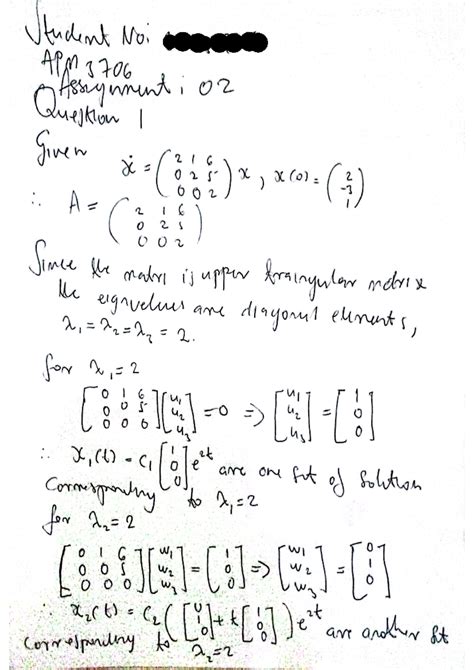 Student No:
APM 3706
Assignment: 02
Question 1
Given
ẋ = (2 1 6; 0 2 5; 0 0 2) x, x(0) = (2; -3; 1)
∴ A = (2 1 6; 0 2 5; 0 0 2)
Since the matri is upper traingular matrix
the eignvelues are diagonal elements,
λ₁ = λ₂ = λ₃ = 2.
for λ₁ = 2
[0 1 6; 0 0 5; 0 0 0] [u₁; u₂; u₃] = 0 ⇒ [u₁; u₂; u₃] = [1; 0; 0]
∴ x₁(t) = c₁ [1; 0; 0] e^{2t} are one set of solution
corresponding to λ₁ = 2
for λ₂ = 2
[0 1 6; 0 0 5; 0 0 0] [w₁; w₂; w₃] = [1; 0; 0] ⇒ [w₁; w₂; w₃] = [0; 1; 0]
∴ x₂(t) = c₂ ([0; 1; 0] + t [1; 0; 0]) e^{2t} are another set
corresponding to λ₂ = 2